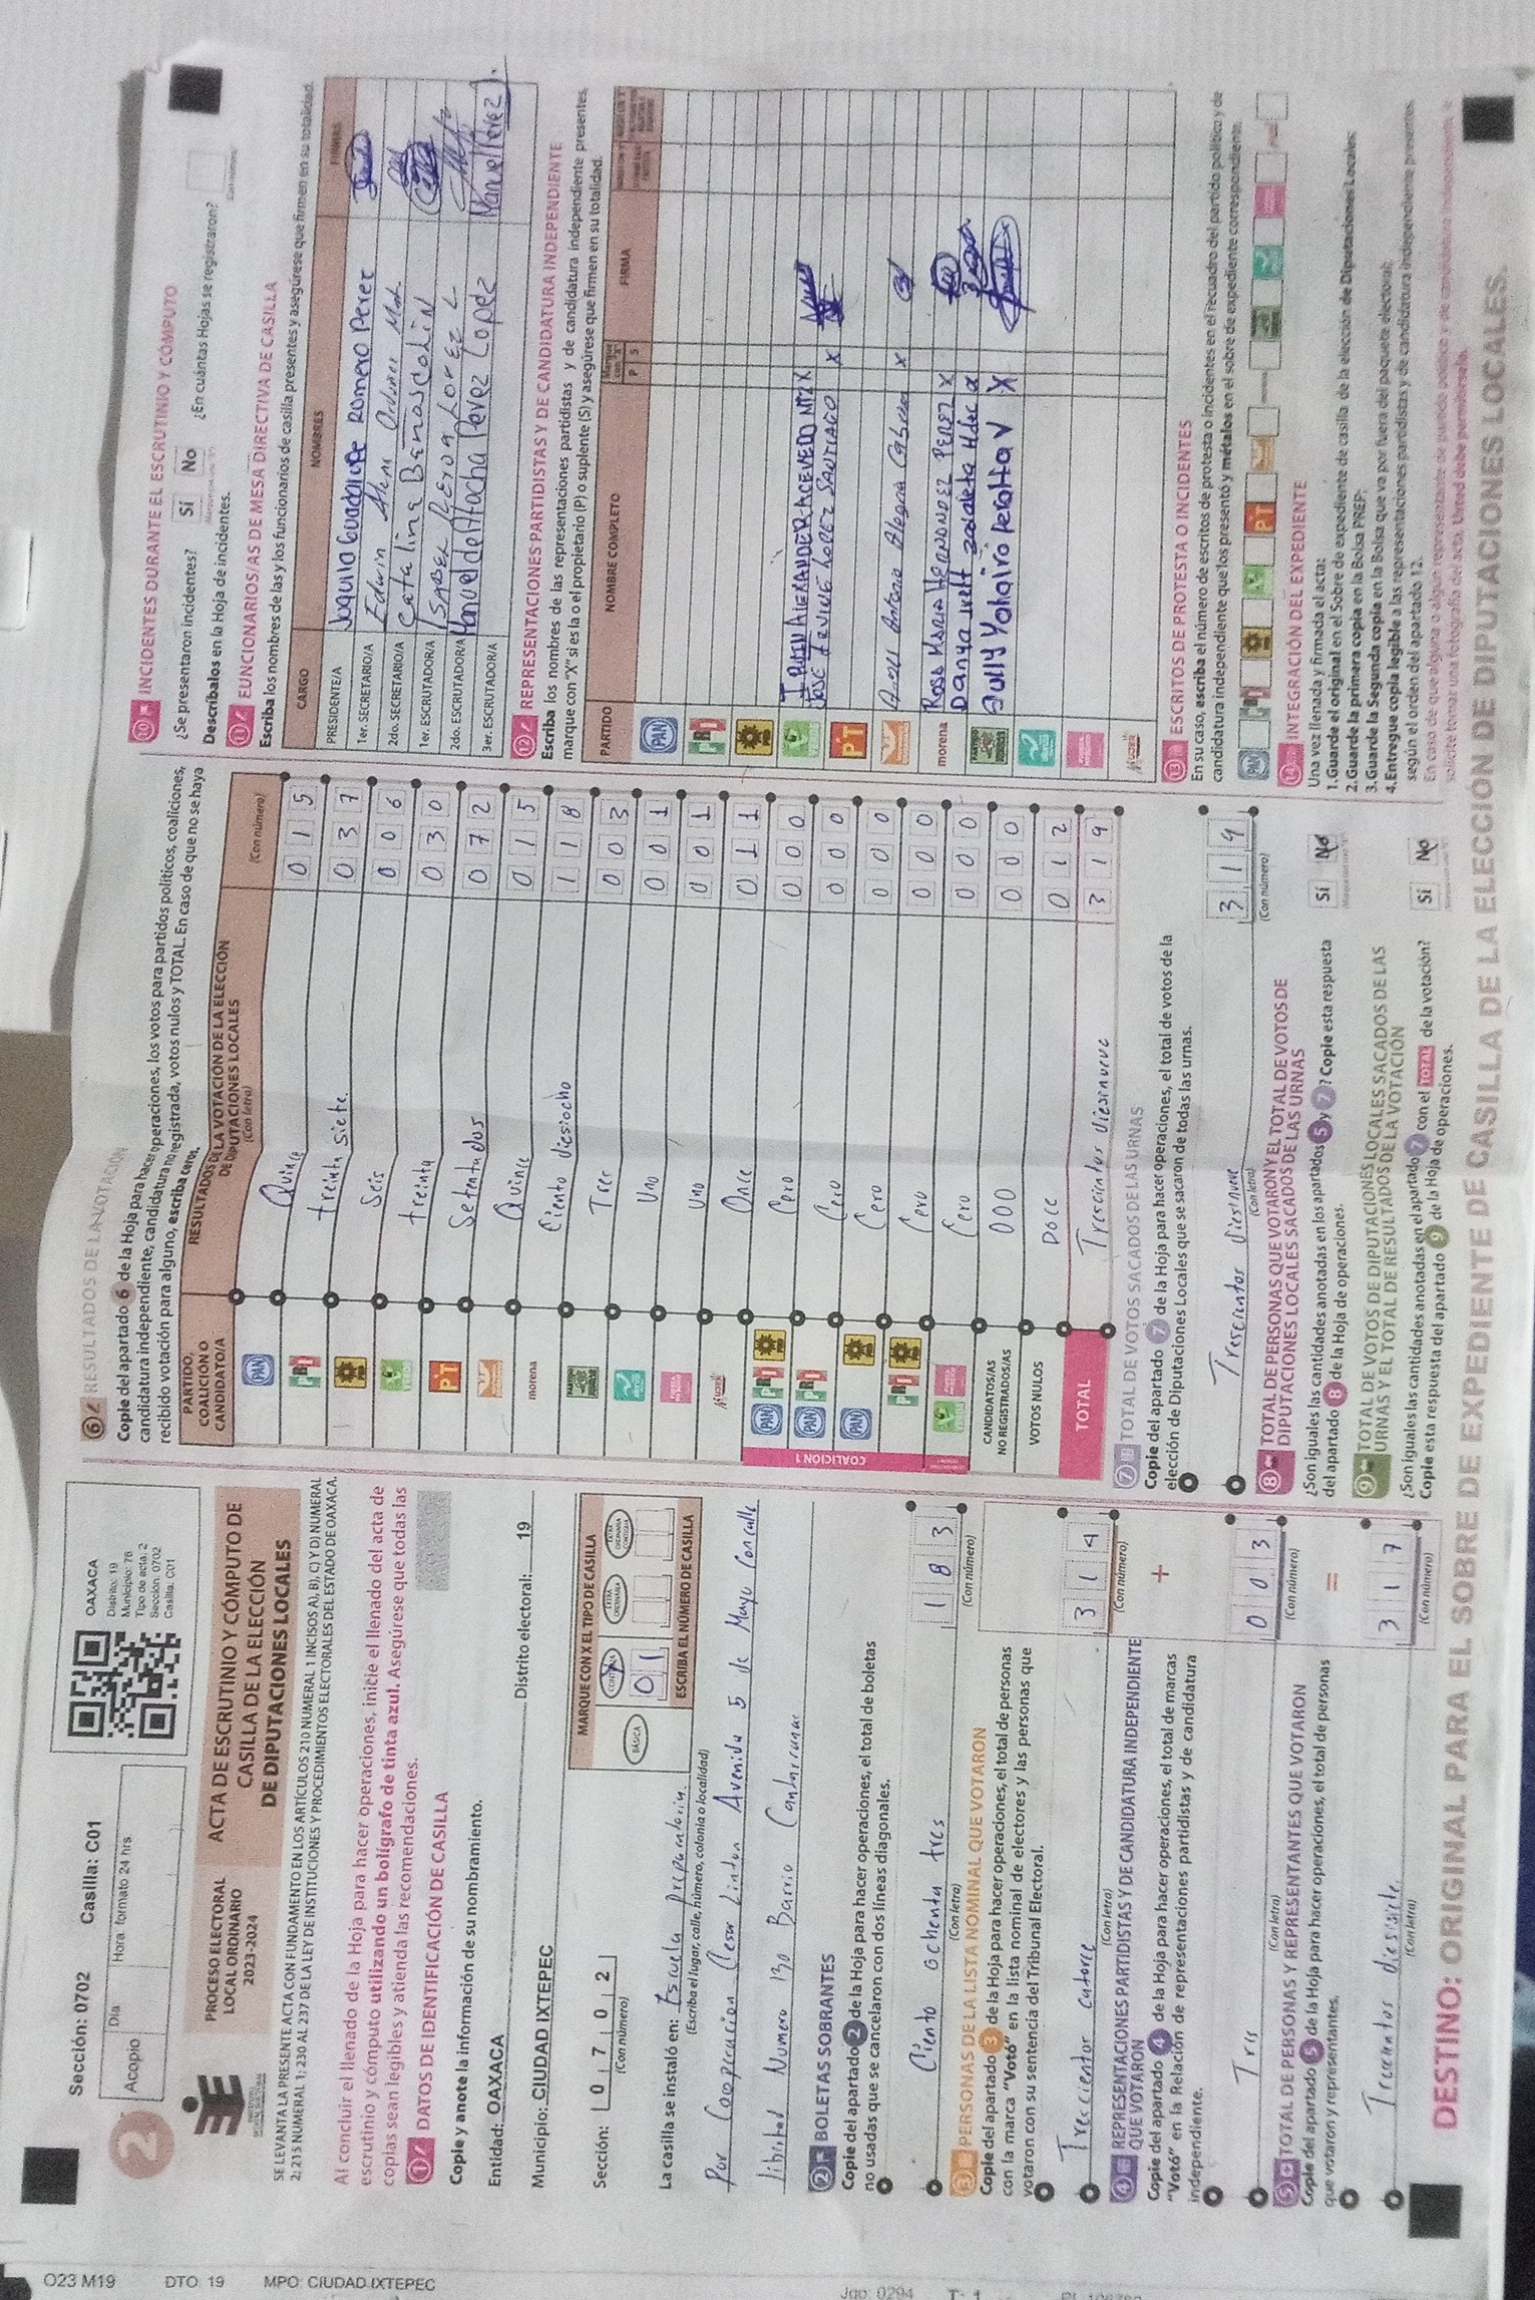 O23 M19
DTO: 19
MPO: CIUDAD IXTEPEC
Sección: 0702
Casilla: C01
2
Acopio
Día
Hora: formato 24 hrs.
OAXACA
Distrito: 19
Municipio: 76
Tipo de acta: 2
Sección: 0702
Casilla: C01
PROCESO ELECTORAL
LOCAL ORDINARIO
2023-2024
ACTA DE ESCRUTINIO Y CÓMPUTO DE
CASILLA DE LA ELECCIÓN
DE DIPUTACIONES LOCALES
SE LEVANTA LA PRESENTE ACTA CON FUNDAMENTO EN LOS ARTÍCULOS 210 NUMERAL 1 INCISOS A), B), C) Y D) NUMERAL
2; 215 NUMERAL 1; 230 AL 237 DE LA LEY DE INSTITUCIONES Y PROCEDIMIENTOS ELECTORALES DEL ESTADO DE OAXACA.
Al concluir el llenado de la Hoja para hacer operaciones, inicie el llenado del acta de
escrutinio y cómputo utilizando un bolígrafo de tinta azul. Asegúrese que todas las
copias sean legibles y atienda las recomendaciones.
1 DATOS DE IDENTIFICACIÓN DE CASILLA
Copie y anote la información de su nombramiento.
Entidad: OAXACA
Distrito electoral: 19
Municipio: CIUDAD IXTEPEC
Sección: 0 7 0 2
(Con número)
MARQUE CON X EL TIPO DE CASILLA
BÁSICA
CONTIGUA
EXTRA ORDINARIA
EXTRA ORDINARIA CONTIGUA
0 1
ESCRIBA EL NÚMERO DE CASILLA
La casilla se instaló en: Escuela preparatoria.
(Escriba el lugar, calle, número, colonia o localidad)
Por Cooperacion Cesar Linton Avenida 5 de Mayo Con calle
Libertad Numero 130 Barrio
2 BOLETAS SOBRANTES
Copie del apartado 2 de la Hoja para hacer operaciones, el total de boletas
no usadas que se cancelaron con dos líneas diagonales.
Ciento ochenta tres
1 8 3
(Con letra)
(Con número)
3 PERSONAS DE LA LISTA NOMINAL QUE VOTARON
Copie del apartado 3 de la Hoja para hacer operaciones, el total de personas
con la marca "Votó" en la lista nominal de electores y las personas que
votaron con su sentencia del Tribunal Electoral.
Trescientos catorce
3 1 4
(Con letra)
(Con número)
4 REPRESENTACIONES PARTIDISTAS Y DE CANDIDATURA INDEPENDIENTE
QUE VOTARON
+
Copie del apartado 4 de la Hoja para hacer operaciones, el total de marcas
"Votó" en la Relación de representaciones partidistas y de candidatura
independiente.
Tres
0 0 3
(Con letra)
(Con número)
5 TOTAL DE PERSONAS Y REPRESENTANTES QUE VOTARON
=
Copie del apartado 5 de la Hoja para hacer operaciones, el total de personas
que votaron y representantes.
Trecientos diesisite
3 1 7
(Con letra)
(Con número)
6 RESULTADOS DE LA VOTACIÓN
Copie del apartado 6 de la Hoja para hacer operaciones, los votos para partidos políticos, coaliciones,
candidatura independiente, candidatura no registrada, votos nulos y TOTAL. En caso de que no se haya
recibido votación para alguno, escriba ceros.
PARTIDO, COALICIÓN O CANDIDATO/A
RESULTADOS DE LA VOTACIÓN DE LA ELECCIÓN
DE DIPUTACIONES LOCALES
(Con letra)
(Con número)
PAN Quince 0 1 5
PRI treinta siete 0 3 7
PRD Seis 0 0 6
VERDE treinta 0 3 0
PT Setentados 0 7 2
Quince 0 1 5
morena Ciento diesiocho 1 1 8
Tres 0 0 3
Uno 0 0 1
MUJER Uno 0 0 1
COALICIÓN 1
PAN PRI PRD Once 0 1 1
PAN PRI Cero 0 0 0
PAN PRD Cero 0 0 0
PRI PRD Cero 0 0 0
Cero 0 0 0
CANDIDATOS/AS
NO REGISTRADOS/AS
Cero 0 0 0
000 0 0 0
VOTOS NULOS Doce 0 1 2
TOTAL Trescientos diesinueve 3 1 9
7 TOTAL DE VOTOS SACADOS DE LAS URNAS
Copie del apartado 7 de la Hoja para hacer operaciones, el total de votos de la
elección de Diputaciones Locales que se sacaron de todas las urnas.
Trescientos diesinueve
3 1 9
(Con letra)
(Con número)
8 TOTAL DE PERSONAS QUE VOTARON Y EL TOTAL DE VOTOS DE
DIPUTACIONES LOCALES SACADOS DE LAS URNAS
¿Son iguales las cantidades anotadas en los apartados 5 y 7? Copie esta respuesta
del apartado 8 de la Hoja de operaciones.
Sí
No
9 TOTAL DE VOTOS DE DIPUTACIONES LOCALES SACADOS DE LAS
URNAS Y EL TOTAL DE RESULTADOS DE LA VOTACIÓN
¿Son iguales las cantidades anotadas en el apartado 7 con el TOTAL de la votación?
Copie esta respuesta del apartado 9 de la Hoja de operaciones.
Sí
No
10 INCIDENTES DURANTE EL ESCRUTINIO Y CÓMPUTO
¿Se presentaron incidentes?
Sí
No
¿En cuántas Hojas se registraron?
Descríbalos en la Hoja de incidentes.
11 FUNCIONARIOS/AS DE MESA DIRECTIVA DE CASILLA
Escriba los nombres de las y los funcionarios de casilla presentes y asegúrese que firmen en su totalidad.
CARGO
NOMBRES
FIRMAS
PRESIDENTE/A Joquilo Guadalupe Romero Perez
1er. SECRETARIO/A Edwin
2do. SECRETARIO/A Catalina Benas Colin
1er. ESCRUTADOR/A ISABEL
2do. ESCRUTADOR/A Manuel de Perez Lopez
3er. ESCRUTADOR/A
Manuel Perez J.
12 REPRESENTACIONES PARTIDISTAS Y DE CANDIDATURA INDEPENDIENTE
Escriba los nombres de las representaciones partidistas y de candidatura independiente presentes,
marque con "X" si es la o el propietario (P) o suplente (S) y asegúrese que firmen en su totalidad.
PARTIDO
NOMBRE COMPLETO
Marque con "X"
P S
FIRMA
PAN
PRI
PRD
VERDE ALEXANDER ACEVEDO MTZ X
JOSE IRVING LOPEZ SANTIAGO X
PT
Antonio Alegria X
morena Rosa Maria HERNANDEZ PEREZ X
Danya Ivett Zaldaleta Hdez
Yohairo Peralta V X
MUJER
13 ESCRITOS DE PROTESTA O INCIDENTES
En su caso, escriba el número de escritos de protesta o incidentes en el recuadro del partido político y de
candidatura independiente que los presentó y métalos en el sobre de expediente correspondiente.
14 INTEGRACIÓN DEL EXPEDIENTE
Una vez llenada y firmada el acta:
1.Guarde el original en el Sobre de expediente de casilla de la elección de Diputaciones Locales;
2.Guarde la primera copia en la Bolsa PREP;
3.Guarde la Segunda copia en la Bolsa que va por fuera del paquete electoral;
4.Entregue copia legible a las representaciones partidistas y de candidatura independiente presentes,
según el orden del apartado 12.
En caso de que alguna o algún representante de partido político y de candidatura independiente, le
solicite tomar una fotografía del acta, Usted debe permitírselo.
DESTINO: ORIGINAL PARA EL SOBRE DE EXPEDIENTE DE CASILLA DE LA ELECCIÓN DE DIPUTACIONES LOCALES.